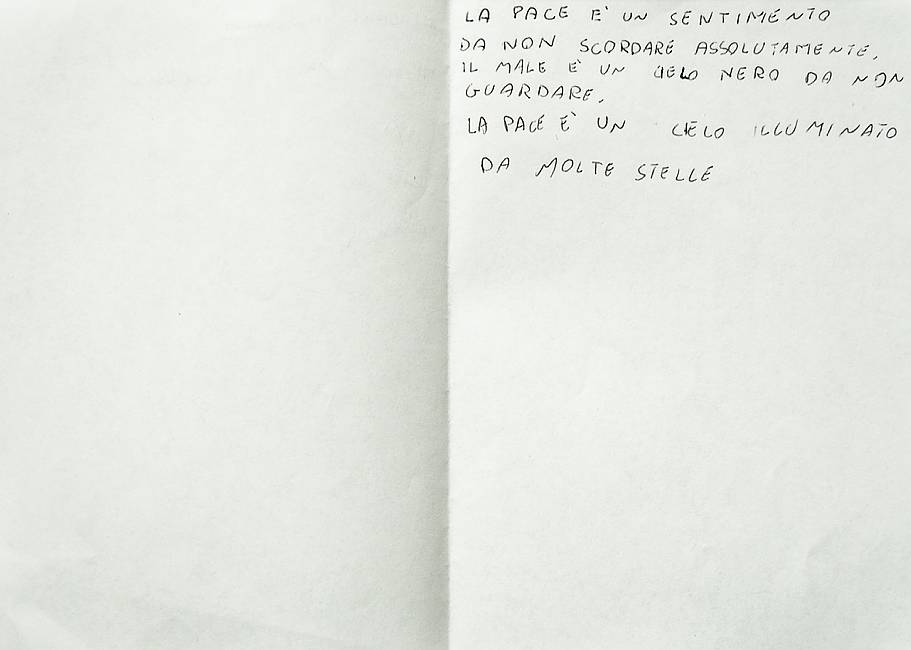 LA PACE E' UN SENTIMENTO
DA NON SCORDARE ASSOLUTAMENTE,
IL MALE E' UN CIELO NERO DA NON
GUARDARE,
LA PACE E' UN CIELO ILLUMINATO
DA MOLTE STELLE